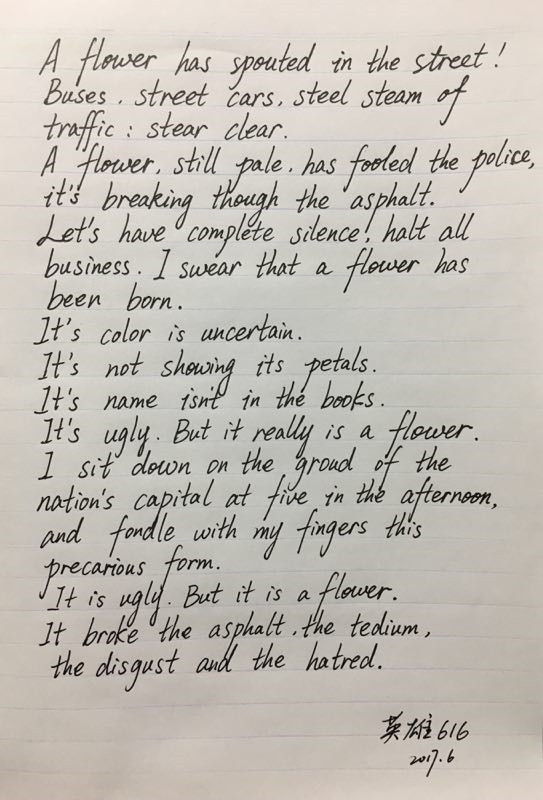 A flower has spouted in the street!
Buses, street cars, steel steam of
traffic: stear clear.
A flower, still pale, has fooled the police,
it's breaking though the asphalt.
Let's have complete silence, halt all
business. I swear that a flower has
been born.
It's color is uncertain.
It's not showing its petals.
It's name isn't in the books.
It's ugly. But it really is a flower.
I sit down on the groud of the
nation's capital at five in the afternoon,
and fondle with my fingers this
precarious form.
It is ugly. But it is a flower.
It broke the asphalt, the tedium,
the disgust and the hatred.
英雄616
2017.6